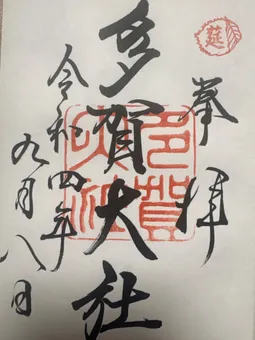 莚
奉拝
多賀大社
多賀大社
令和四年九月八日